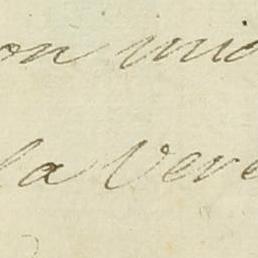 on mio
la Vere